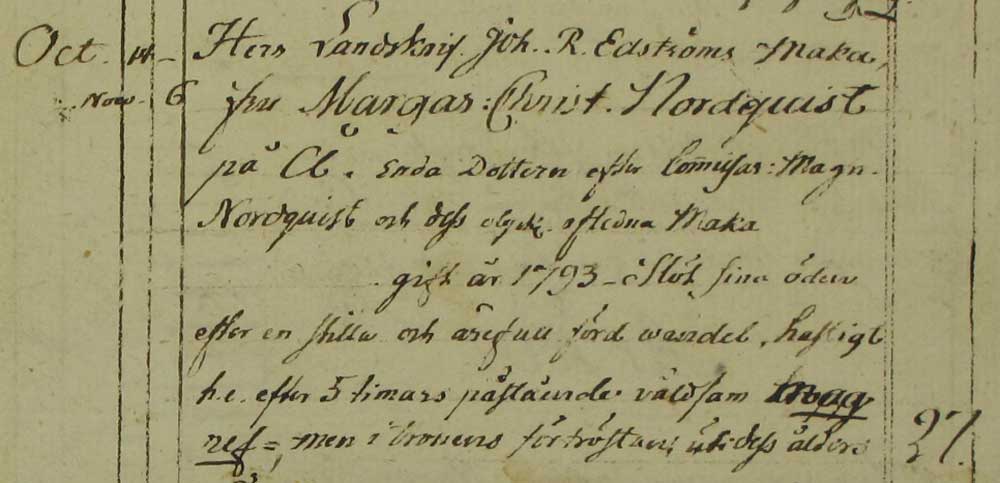 Oct. 14 - Herr Landskrif. Joh. R. Edströms Maka,
Nov. 6 fru Margar: Christ. Nordquist
på Åb. Enda Dottern efter Commissar: Magn.
Nordquist och dess afledna Maka
gift år 1793 - Slöt sina öden
efter en stilla och ärefull förd wandel, hastigt
h.e. efter 5 timars påstående våldsam magg
ref =, men i tronens förtröstan, uti dess ålders 37.